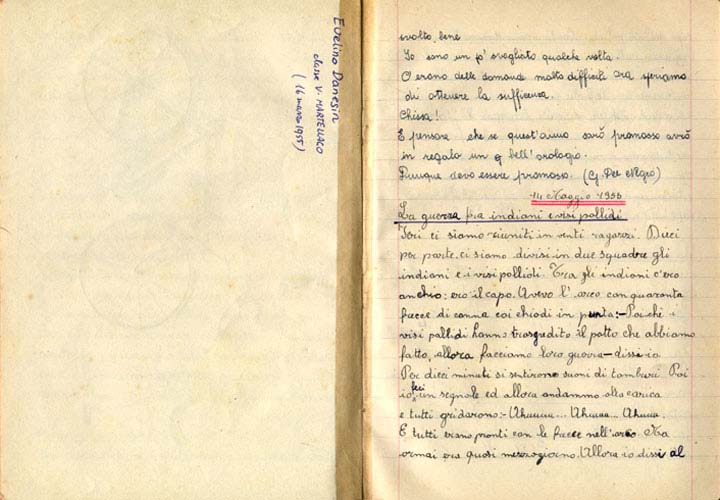 Evelino Danesin
classe V. MARTELLAGO
(16 marzo 1955)
svolto, bene
Io sono un po' svogliato qualche volta.
O erano delle domande molto difficili ora speriamo
di ottenere la sufficenza.
Chissa!
E pensare che se quest'anno sarò promosso avrò
in regalo un bell'orologio.
Dunque devo essere promosso. (G. Del Negro)
14 Maggio 1955
La guerra fra indiani e visi pallidi
Ieri ci siamo riuniti in venti ragazzi. Dieci
per parte, ci siamo divisi in due squadre gli
indiani e i visi pallidi. Tra gli indiani c'ero
anch'io: ero il capo. Avevo l'arco con quaranta
frecce di canna coi chiodi in punta:-Poichè i
visi pallidi hanno trasgredito il patto che abbiamo
fatto, allora facciamo loro guerra-dissi io.
Per dieci minuti si sentirono suoni di tamburi. Poi
io feci un segnale ed allora andammo alla carica
e tutti gridarono:-Uhuuuu... Uhuuu... Uhuuu.
E tutti erano pronti con le frecce nell'arco. Ma
ormai era quasi mezzogiorno. Allora io dissi al